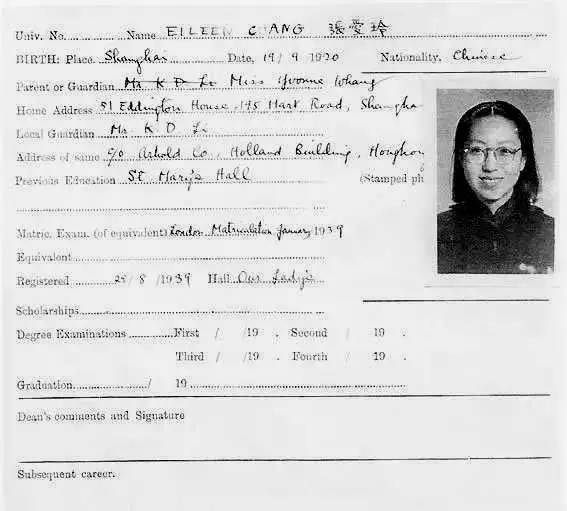 Univ. No. Name EILEEN CHANG 張愛玲
BIRTH: Place. Shanghai Date, 19/9 1920 Nationality, Chinese
Parent or Guardian Mr K D Li Miss Yvonne Whang
Home Address 51 Eddington House, 195 Hart Road, Shangha
Local Guardian Mr K D Li
Address of same c/o Arnhold Co., Holland Building, Hongkon
Previous Education St Mary's Hall (Stamped ph
Matric. Exam. (of equivalent) London Matriculation January 1939
Equivalent
Registered 29/8/1939 Hall Our Lady's
Scholarships
Degree Examinations First / /19 . Second / 19 .
Third / /19 . Fourth / 19 .
Graduation / 19
Dean's comments and Signature
Subsequent career.